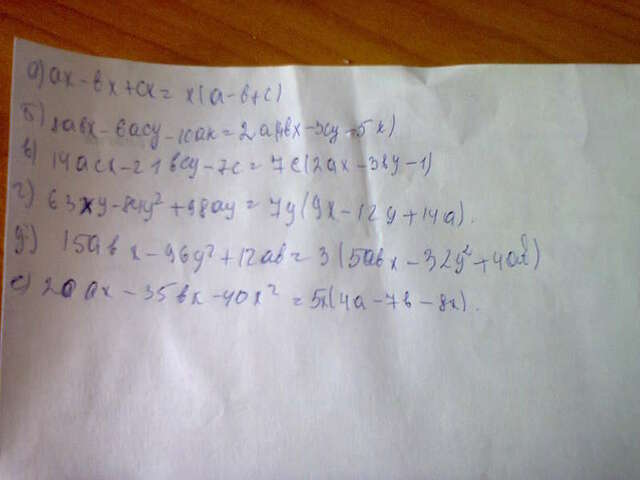 а) ax - bx + cx = x(a - b + c)
б) 8abx - 6acy - 10ak = 2a(4bx - 3cy - 5k)
в) 14acx - 21bcy - 7c = 7c(2ax - 3by - 1)
г) 63xy - 84y² + 98ay = 7y(9x - 12y + 14a).
д) 15abx - 96y² + 12ab = 3(5abx - 32y² + 4ab)
е) 20ax - 35bx - 40x² = 5x(4a - 7b - 8x).